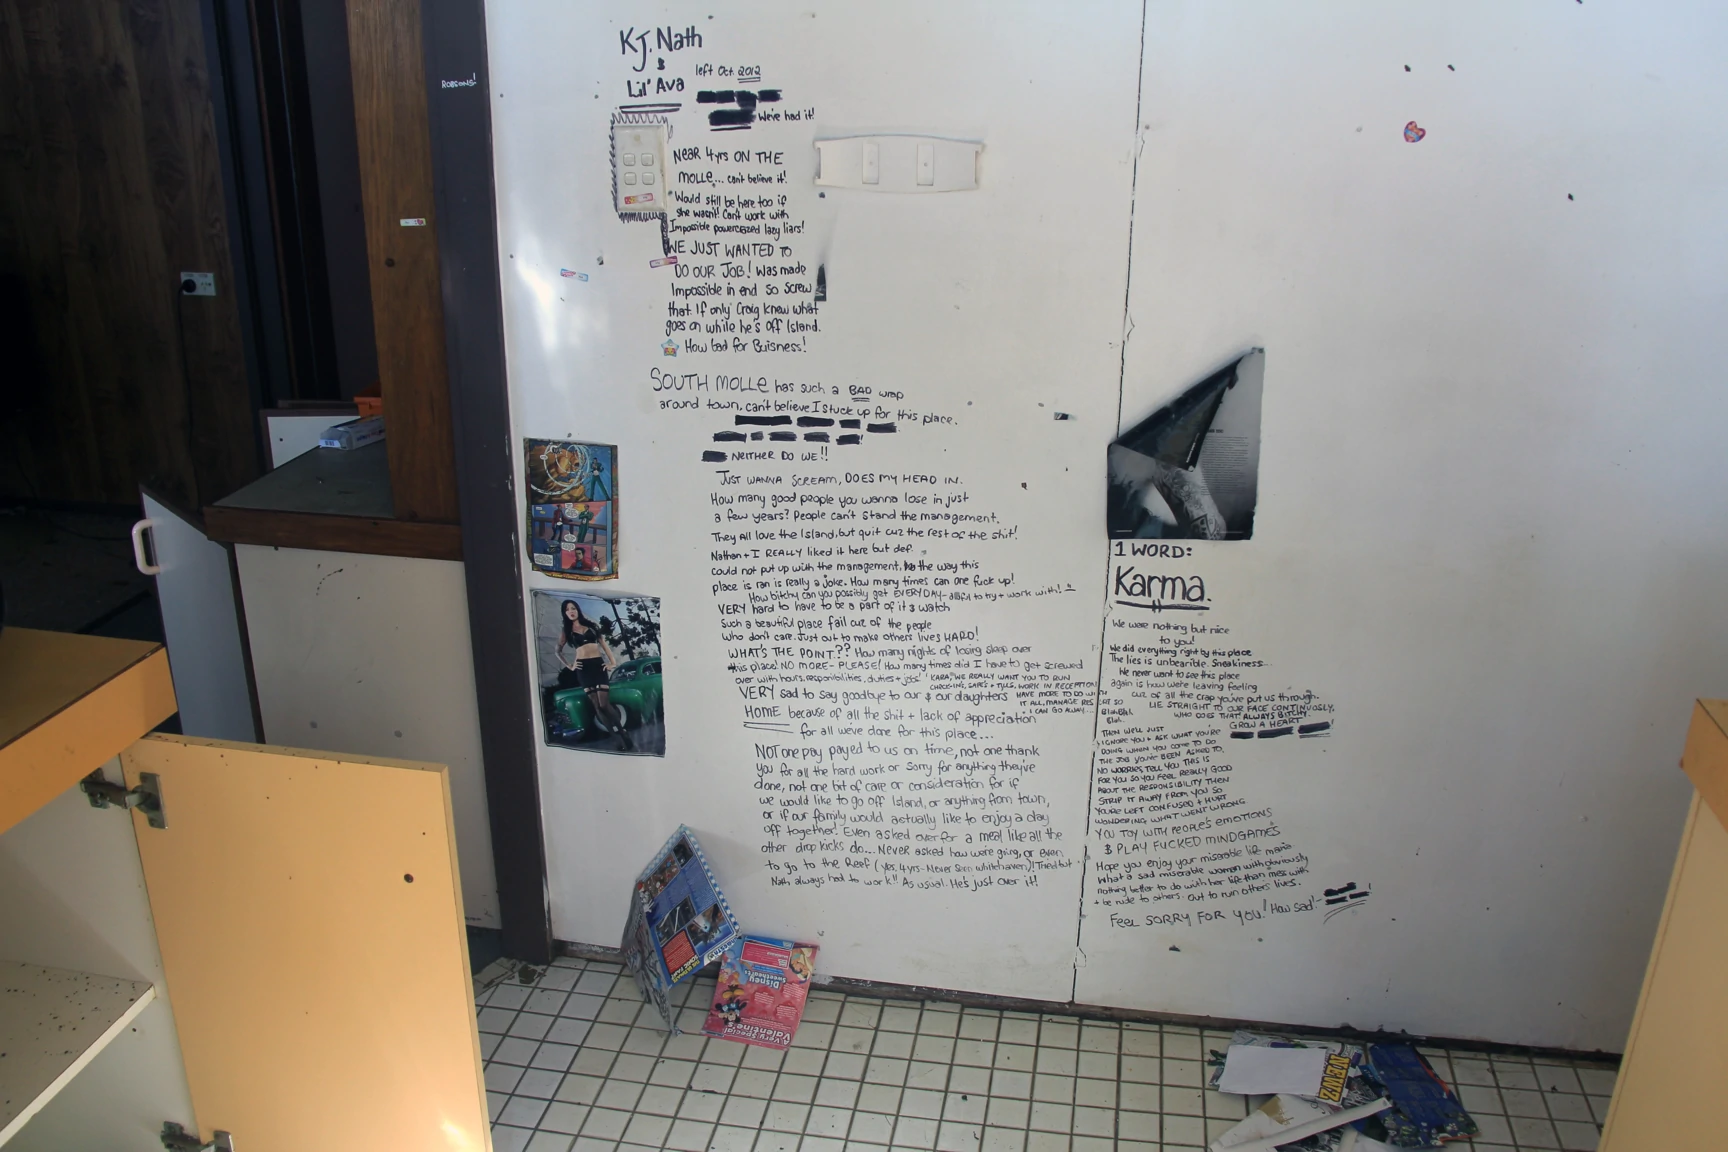 ROBSONS!
KJ. Nath
&
Lil' Ava
left Oct. 2012
We've had it!
NEAR 4yrs ON THE
MOLLE... can't believe it!
Would still be here too if
she wasn't! Can't work with
Impossible powercrazed lazy liars!
WE JUST WANTED TO
DO OUR JOB! Was made
Impossible in end so screw
that. If only Craig knew what
goes on while he's off Island.
How bad for Buisness!
SOUTH MOLLE has such a BAD wrap
around town, can't believe I stuck up for this place.
NEITHER DO WE!!
JUST WANNA SCREAM, DOES MY HEAD IN.
How many good people you wanna lose in just
a few years? People can't stand the management.
They All love the Island, but quit cuz the rest of the shit!
Nathan + I REALLY liked it here but def.
could not put up with the management, the way this
place is ran is really a joke. How many times can one fuck up!
How bitchy can you possibly get EVERYDAY - awful to try + work with!
VERY hard to have to be a part of it & watch
Such a beautiful place fail cuz of the people
who don't care. Just out to make others lives HARD!
WHAT'S THE POINT?? How many nights of losing sleep over
this place! NO MORE - PLEASE! How many times did I have to get screwed
over with hours, responibilities, duties + jobs! 'KARA, WE REALLY WANT YOU TO RUN
CHECKING, SAFES + TILLS, WORK IN RECEPTION
HAVE MORE TO DO WITH
IT ALL, MANAGE RES
I CAN GO AWAY...
SO
Blah Blah
Blah.
VERY sad to say goodbye to our & our daughters
HOME because of all the shit + lack of appreciation
for all we've done for this place...
NOT one pay payed to us on time, not one thank
you for all the hard work or sorry for anything they've
done, not one bit of care or consideration for if
we would like to go off Island, or anything from town,
or if our family would actually like to enjoy a day
off together! Even asked over for a meal like all the
other drop kicks do... NEVER asked how we're going, or even
to go to the Reef (yes, 4yrs - Never Seen whitehaven)! Tried but
Nath always had to work!! As usual. He's just over it!
1 WORD:
Karma.
We were nothing but nice
to you!
We did everything right by this place
The lies is unbearible. Sneakiness...
We never want to see this place
again is how we're leaving feeling
cuz of all the crap you've put us through.
LIE STRAIGHT TO OUR FACE CONTINUOSLY,
WHO DOES THAT! ALWAYS BITCHY.
GROW A HEART
THEN WE'LL JUST
IGNORE YOU & ASK WHAT YOU'RE
DOING WHEN YOU COME TO DO
THE JOB YOU'VE BEEN ASKED TO,
NO WORRIES TELL YOU THIS IS
FOR YOU SO YOU FEEL REALLY GOOD
ABOUT THE RESPONSIBILITY THEN
STRIP IT AWAY FROM YOU SO
YOU'RE LEFT CONFUSED + HURT
WONDERING WHAT WENT WRONG
YOU TOY WITH PEOPLE'S EMOTIONS
& PLAY FUCKED MINDGAMES
Hope you enjoy your miserable life maria
What a sad miserable woman with obviously
nothing better to do with her life than mess with
+ be rude to others. out to ruin others lives.
FEEL SORRY FOR YOU! How sad!
Disney
sweethearts
A Very Special
Valentine's